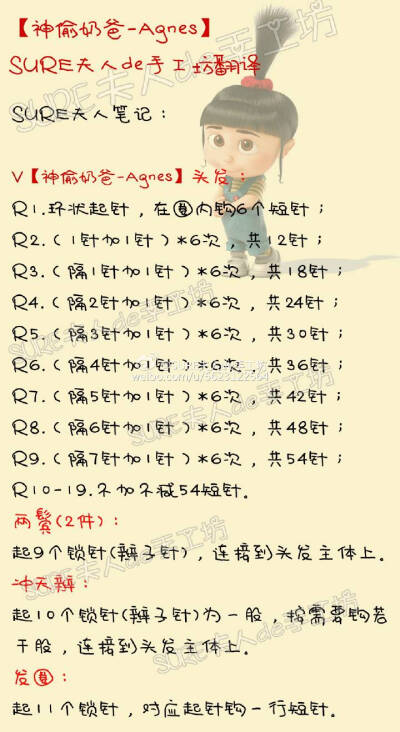 【神偷奶爸-Agnes】
SURE夫人de手工坊翻译
SURE夫人笔记：
V【神偷奶爸-Agnes】头发：
R1.环状起针，在圈内钩6个短针；
R2.（1针加1针）*6次，共12针；
R3.（隔1针加1针）*6次，共18针；
R4.（隔2针加1针）*6次，共24针；
R5.（隔3针加1针）*6次，共30针；
R6.（隔4针加1针）*6次，共36针；
R7.（隔5针加1针）*6次，共42针；
R8.（隔6针加1针）*6次，共48针；
R9.（隔7针加1针）*6次，共54针；
R10-19.不加不减54短针。
两鬓(2件)：
起9个锁针(辫子针)，连接到头发主体上。
冲天辫：
起10个锁针(辫子针)为一股，按需要钩若
干股，连接到头发主体上。
发圈：
起11个锁针，对应起针钩一行短针。
SURE夫人de手工坊
SURE夫人de手工坊
SURE夫人de手工坊
SURE夫人de手工坊
SURE夫人de手工坊